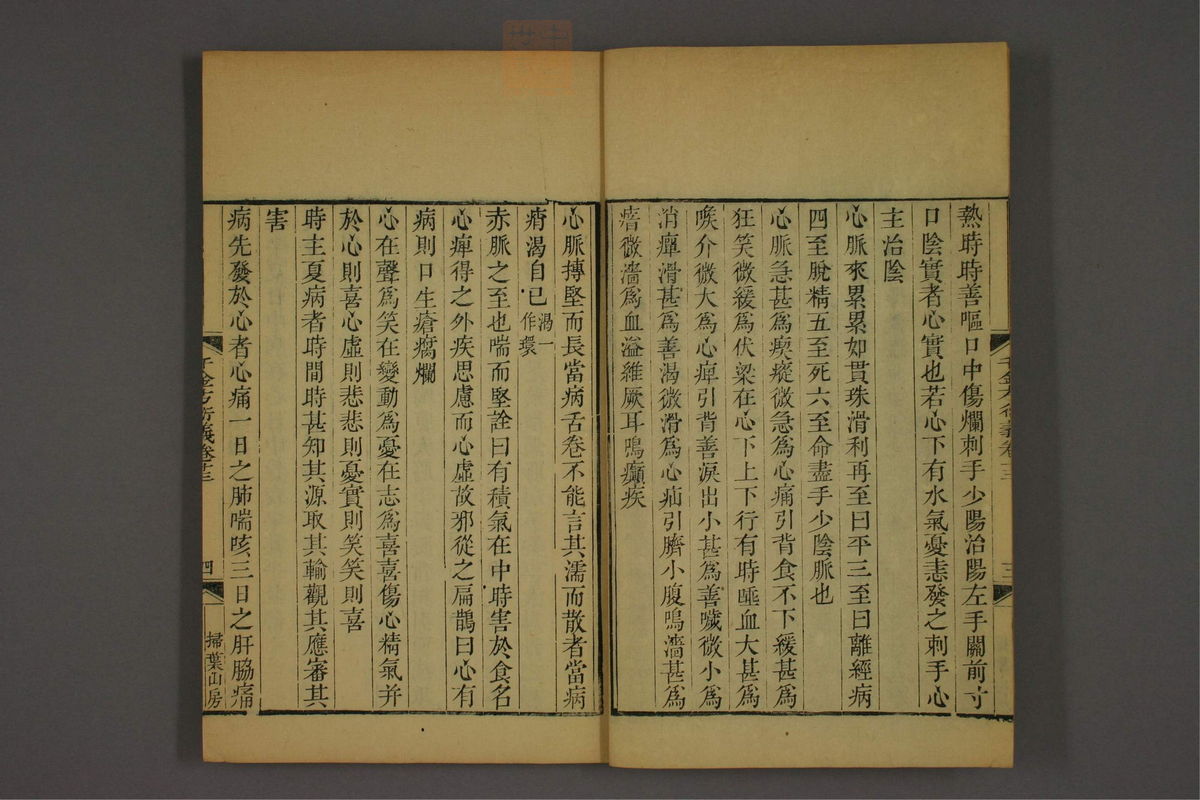 熱時時善嘔口中傷爛刺手少陽治陽左手關前寸
口陰實者心實也若心下有水氣憂恚發之刺手心
主治陰
心脈來累累如貫珠滑利再至曰平三至曰離經病
四至脫精五至死六至命盡手少陰脈也
心脈急甚為瘈瘲微急為心痛引背食不下緩甚為
狂笑微緩為伏梁在心下上下行有時唾血大甚為
喉介微大為心痺引背善淚出小甚為善噦微小為
消癉滑甚為善渴微滑為心疝引臍小腹鳴濇甚為
瘖微濇為血溢維厥耳鳴癲疾
心脈摶堅而長當病舌卷不能言其濡而散者當病
痟渴自已渴一作環
赤脈之至也喘而堅診曰有積氣在中時害於食名
心痺得之外疾思慮而心虛故邪從之扁鵲曰心有
病則口生瘡腐爛
心在聲為笑在變動為憂在志為喜喜傷心精氣并
於心則喜心虛則悲悲則憂實則笑笑則喜
時主夏病者時間時甚知其源取其輸觀其應審其
害
病先發於心者心痛一日之肺喘咳三日之肝脇痛
千金方衍義卷十三
四
掃葉山房